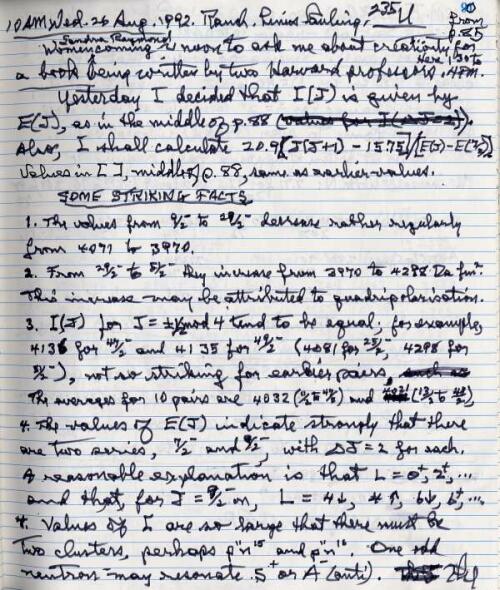 10 AM Wed. 26 Aug. 1992. Ranch. Linus Pauling. 235U 90
from p.85
Sandra
Woman coming at noon to ask me about creativity for
Here 1:30 to 4PM.
a book being written by two Harvard professors.
Yesterday I decided that I(J) is given by
E(J), as in the middle of p.88
Also, I shall calculate 20.9[J(J+1) - 15.75]/[E(J)-E(7/2)]
Values in [ ], middle of p.88, same as earlier values.
SOME STRIKING FACTS
1. The values from 9/2- to 29/2- decrease rather regularly
from 4071 to 3970.
2. From 29/2- to 51/2- they increase from 3970 to 4298 Da fm2.
This increase may be attributed to quadripolarisation.
3. I(J) for J = ±1/2 mod 4 tend to be equal, for example,
4136 for 47/2- and 4135 for 49/2- (4081 for 4298 for
51/2-), not so striking for earlier pairs.
The averages for 10 pairs are 4032 and
4. The values of E(J) indicate strongly that there
are two series, 7/2- and 9/2-, with ΔJ = 2 for each.
A reasonable explanation is that L = 0+, 2+, ...
and that, for J = 9/2- on, L = 4↓, 4↑, 6↓, 6↑, ...
4. Values of I are so large that there must be
two clusters, perhaps p n15 and p n16. One odd
neutron may resonate S+ or A- (anti).